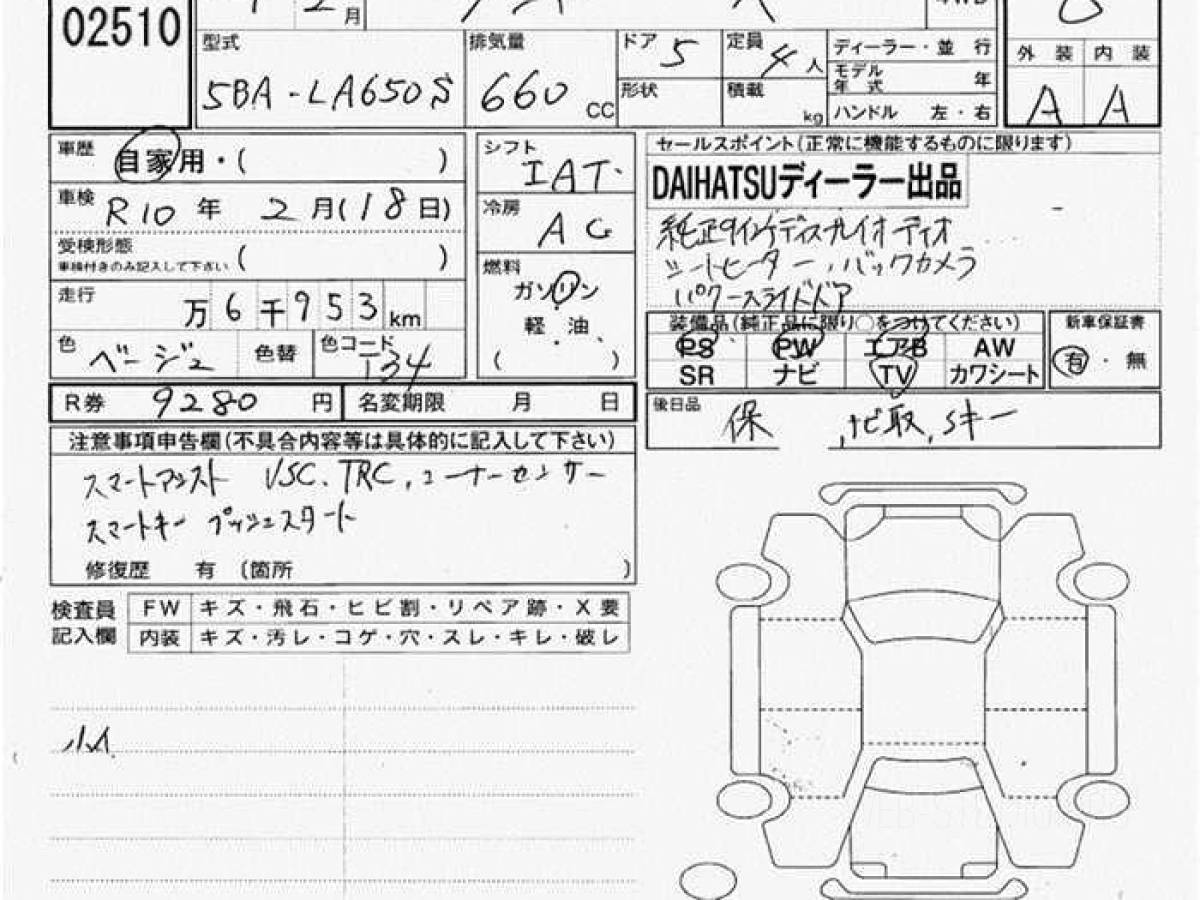 02510
月
型式 5BA-LA650S
排気量 660 CC
ドア 5
形状
定員 4人
積載 kg
ディーラー・並 行
モデル年式 年
ハンドル 左・右
外 装 内 装
A A
車歴 自家用・( )
車検 R10年 2月(18日)
受検形態
車検付きのみ記入して下さい ( )
走行 万6千953km
色 ベージュ 色替 色コード T34
シフト IAT
冷房 AC
燃料
ガソリン
軽・油
( )
セールスポイント(正常に機能するものに限ります)
DAIHATSUディーラー出品
純正9インチディスプレイオーディオ
シートヒーター,バックカメラ
パワースライドドア
装備品(純正品に限り○をつけてください)
PS PW エアB AW
SR ナビ TV カワシート
新車保証書
有・無
R券 9280円 名変期限 月 日
後日品 保 ,ナビ取,Sキー
注意事項申告欄(不具合内容等は具体的に記入して下さい)
スマートアシスト VSC.TRC,コーナーセンサー
スマートキー プッシュスタート
修復歴 有 (箇所 )
検査員記入欄
FW キズ・飛石・ヒビ割・リペア跡・X要
内装 キズ・汚レ・コゲ・穴・スレ・キレ・破レ